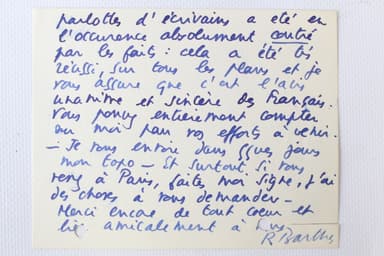 parlottes d'écrivains a été en
l'occurence absolument contré
par les faits : cela a été très
réussi, sur tous les plans et je
vous assure que c'est l'avis
unanime et sincère des Français.
Vous pouvez entièrement compter
sur moi pour vos efforts à venir.
— Je vous envoie dans qques jours
mon topo — Et surtout, si vous
venez à Paris, faites moi signe, j'ai
des choses à vous demander —
Merci encore de tout coeur et
bien amicalement à vous
R Barthes